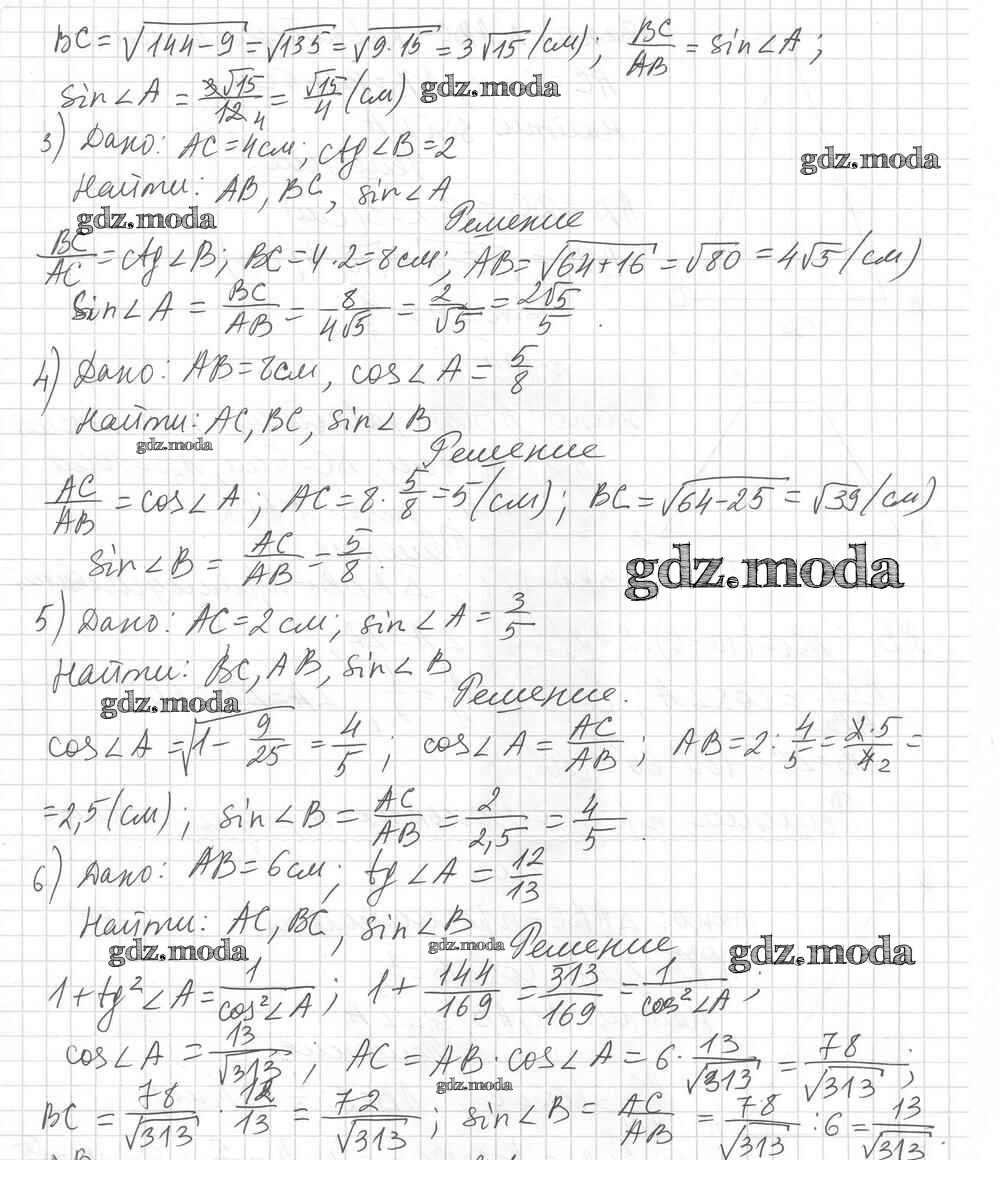 BC = √(144-9) = √135 = √(9·15) = 3√15 (см); BC/AB = sin∠A;
sin∠A = 3√15/12 4 = √15/4 (см) gdz.moda
3) Дано: AC = 4см; ctg∠B = 2
gdz.moda
Найти: AB, BC, sin∠A
gdz.moda Решение
BC/AC = ctg∠B; BC = 4·2 = 8см; AB = √(64+16) = √80 = 4√5 (см)
Sin∠A = BC/AB = 8/4√5 = 2/√5 = 2√5/5.
4) Дано: AB = 8см, cos∠A = 5/8
Найти: AC, BC, sin∠B
gdz.moda Решение
AC/AB = cos∠A; AC = 8·5/8 = 5 (см); BC = √(64-25) = √39 (см)
sin∠B = AC/AB = 5/8.
gdz.moda
5) Дано: AC = 2см; sin∠A = 3/5
Найти: BC, AB, sin∠B
gdz.moda Решение.
cos∠A = √(1 - 9/25) = 4/5; cos∠A = AC/AB; AB = 2 : 4/5 = 2·5/4 2 =
= 2,5 (см); sin∠B = AC/AB = 2/2,5 = 4/5.
6) Дано: AB = 6см; tg∠A = 12/13
Найти: AC, BC, sin∠B
gdz.moda gdz.moda Решение gdz.moda
1 + tg²∠A = 1/cos²∠A; 1 + 144/169 = 313/169 = 1/cos²∠A;
cos∠A = 13/√313; AC = AB·cos∠A = 6·13/√313 = 78/√313;
gdz.moda
BC = 78/√313 · 12/13 = 72/√313; sin∠B = AC/AB = 78/√313 : 6 = 13/√313.